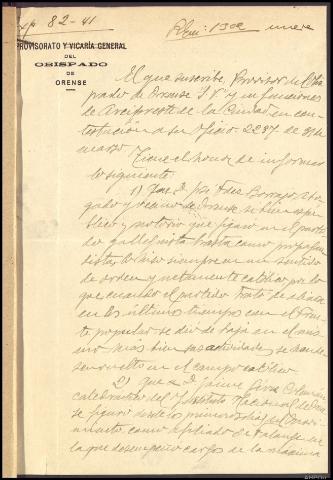 82-41
PROVISORATO Y VICARÍA GENERAL
DEL
OBISPADO
DE
ORENSE
El que suscribe, Provisor del Obis
pado de Orense S. V. y en funciones
de Arcipreste de la Ciudad en con-
testación a su oficio 2287 de
marzo
Tiene el honor de informar
lo siguiente:
1) Que D. José Fdez Borrajo, Abo
gado y vecino de Orense, si bien es pú-
blico y notorio que figuró en el parti
do galleguista hasta como propagan
dista, lo hizo siempre en un sentido
de orden y netamente católico por lo
que cuando el partido trató de aliarse
en los últimos tiempos con el Fren-
te popular se dio de baja en el mis
mo, más bien sus actividades se han de
senvuelto en el campo católico
2) que a D. Jaime
catedrático del Instituto Nacional de
se figuró desde los primeros días del Movi-
miento como afiliado de Falange en
la que desempeñó cargos de la máxima